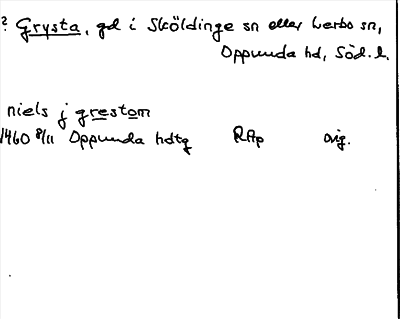 ? Grysta, gd i Sköldinge sn eller Lerbo sn,
Oppunda hd, Söd.l.
niels j grestom
1460 8/11 Oppunda hdtg RAp orig.